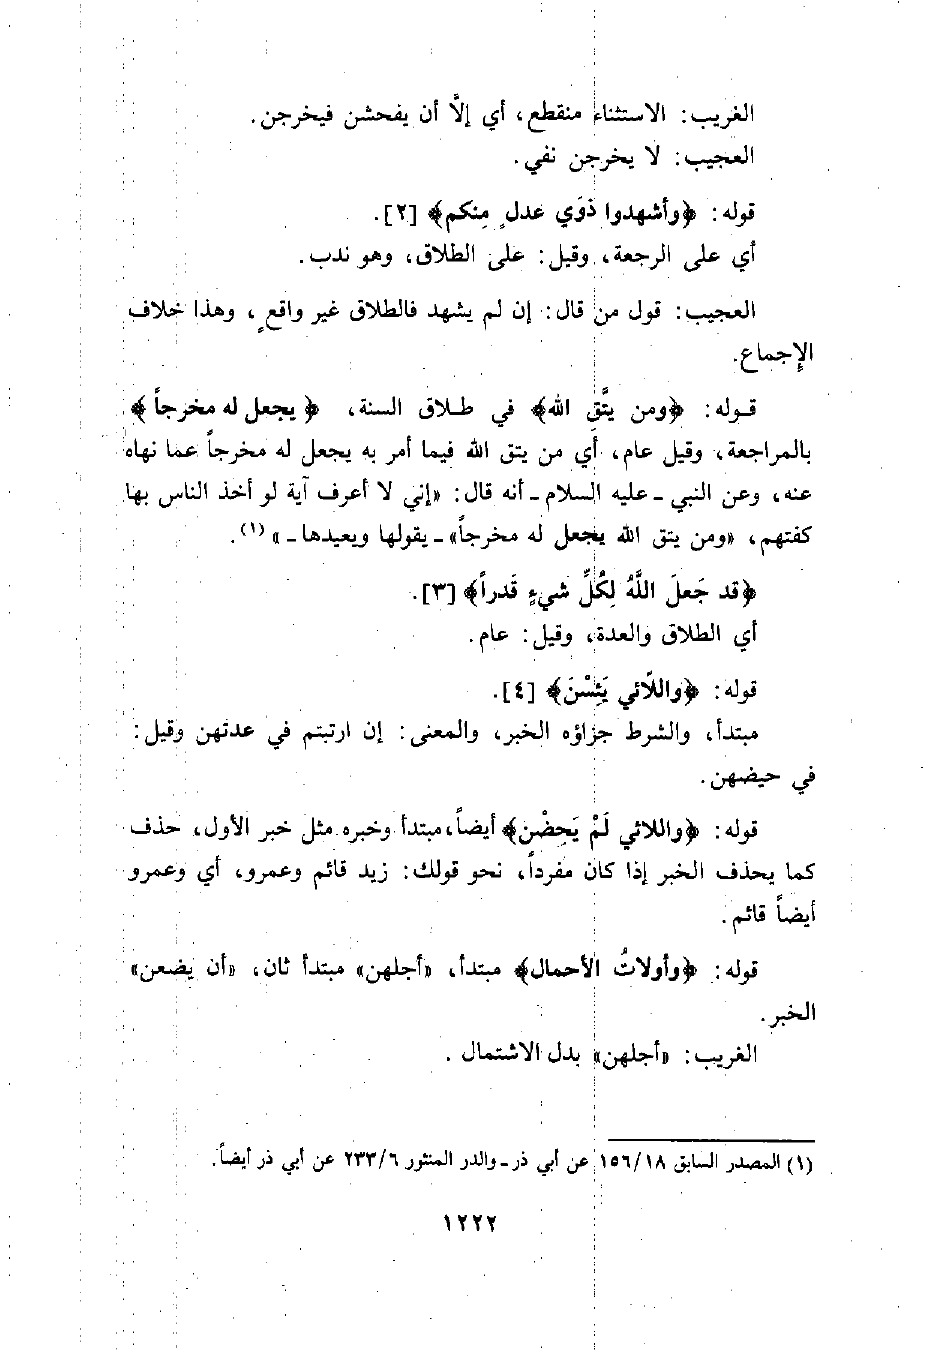 الغريب: الاستثناء منقطع، أي إلَّا أن يفحشن فيخرجن.
العجيب: لا يخرجن نفي.
قوله: ﴿وأشهدوا ذَوَي عدلٍ مِنكم﴾ [٢].
أي على الرجعة، وقيل: على الطلاق، وهو ندب.
العجيب: قول من قال: إن لم يشهد فالطلاق غير واقعٍ، وهذا خلاف
الإجماع.
قوله: ﴿ومن يتَّقِ الله﴾ في طلاق السنة، ﴿يجعل له مخرجاً﴾
بالمراجعة، وقيل عام، أي من يتق الله فيما أمر به يجعل له مخرجاً عما نهاه
عنه، وعن النبي - عليه السلام - أنه قال: «إني لا أعرف آية لو أخذ الناس بها
كفتهم، «ومن يتق الله يجعل له مخرجاً» - يقولها ويعيدها - » (١).
﴿قد جَعلَ اللَّهُ لِكُلِّ شيءٍ قَدراً﴾ [٣].
أي الطلاق والعدة، وقيل: عام.
قوله: ﴿واللَّائي يَئِسْنَ﴾ [٤].
مبتدأ، والشرط جزاؤه الخبر، والمعنى: إن ارتبتم في عدتهن وقيل:
في حيضهن.
قوله: ﴿واللائي لَمْ يَحِضْن﴾ أيضاً، مبتدأ وخبره مثل خبر الأول، حذف
كما يحذف الخبر إذا كان مفرداً، نحو قولك: زيد قائم وعمرو، أي وعمرو
أيضاً قائم.
قوله: ﴿وأولاتُ الأحمال﴾ مبتدأ، «أجلهن» مبتدأ ثان، «أن يضعن»
الخبر.
الغريب: «أجلهن» بدل الاشتمال .
(١) المصدر السابق ١٥٦/١٨ عن أبي ذر - والدر المنثور ٢٣٣/٦ عن أبي ذر أيضاً.
١٢٢٢